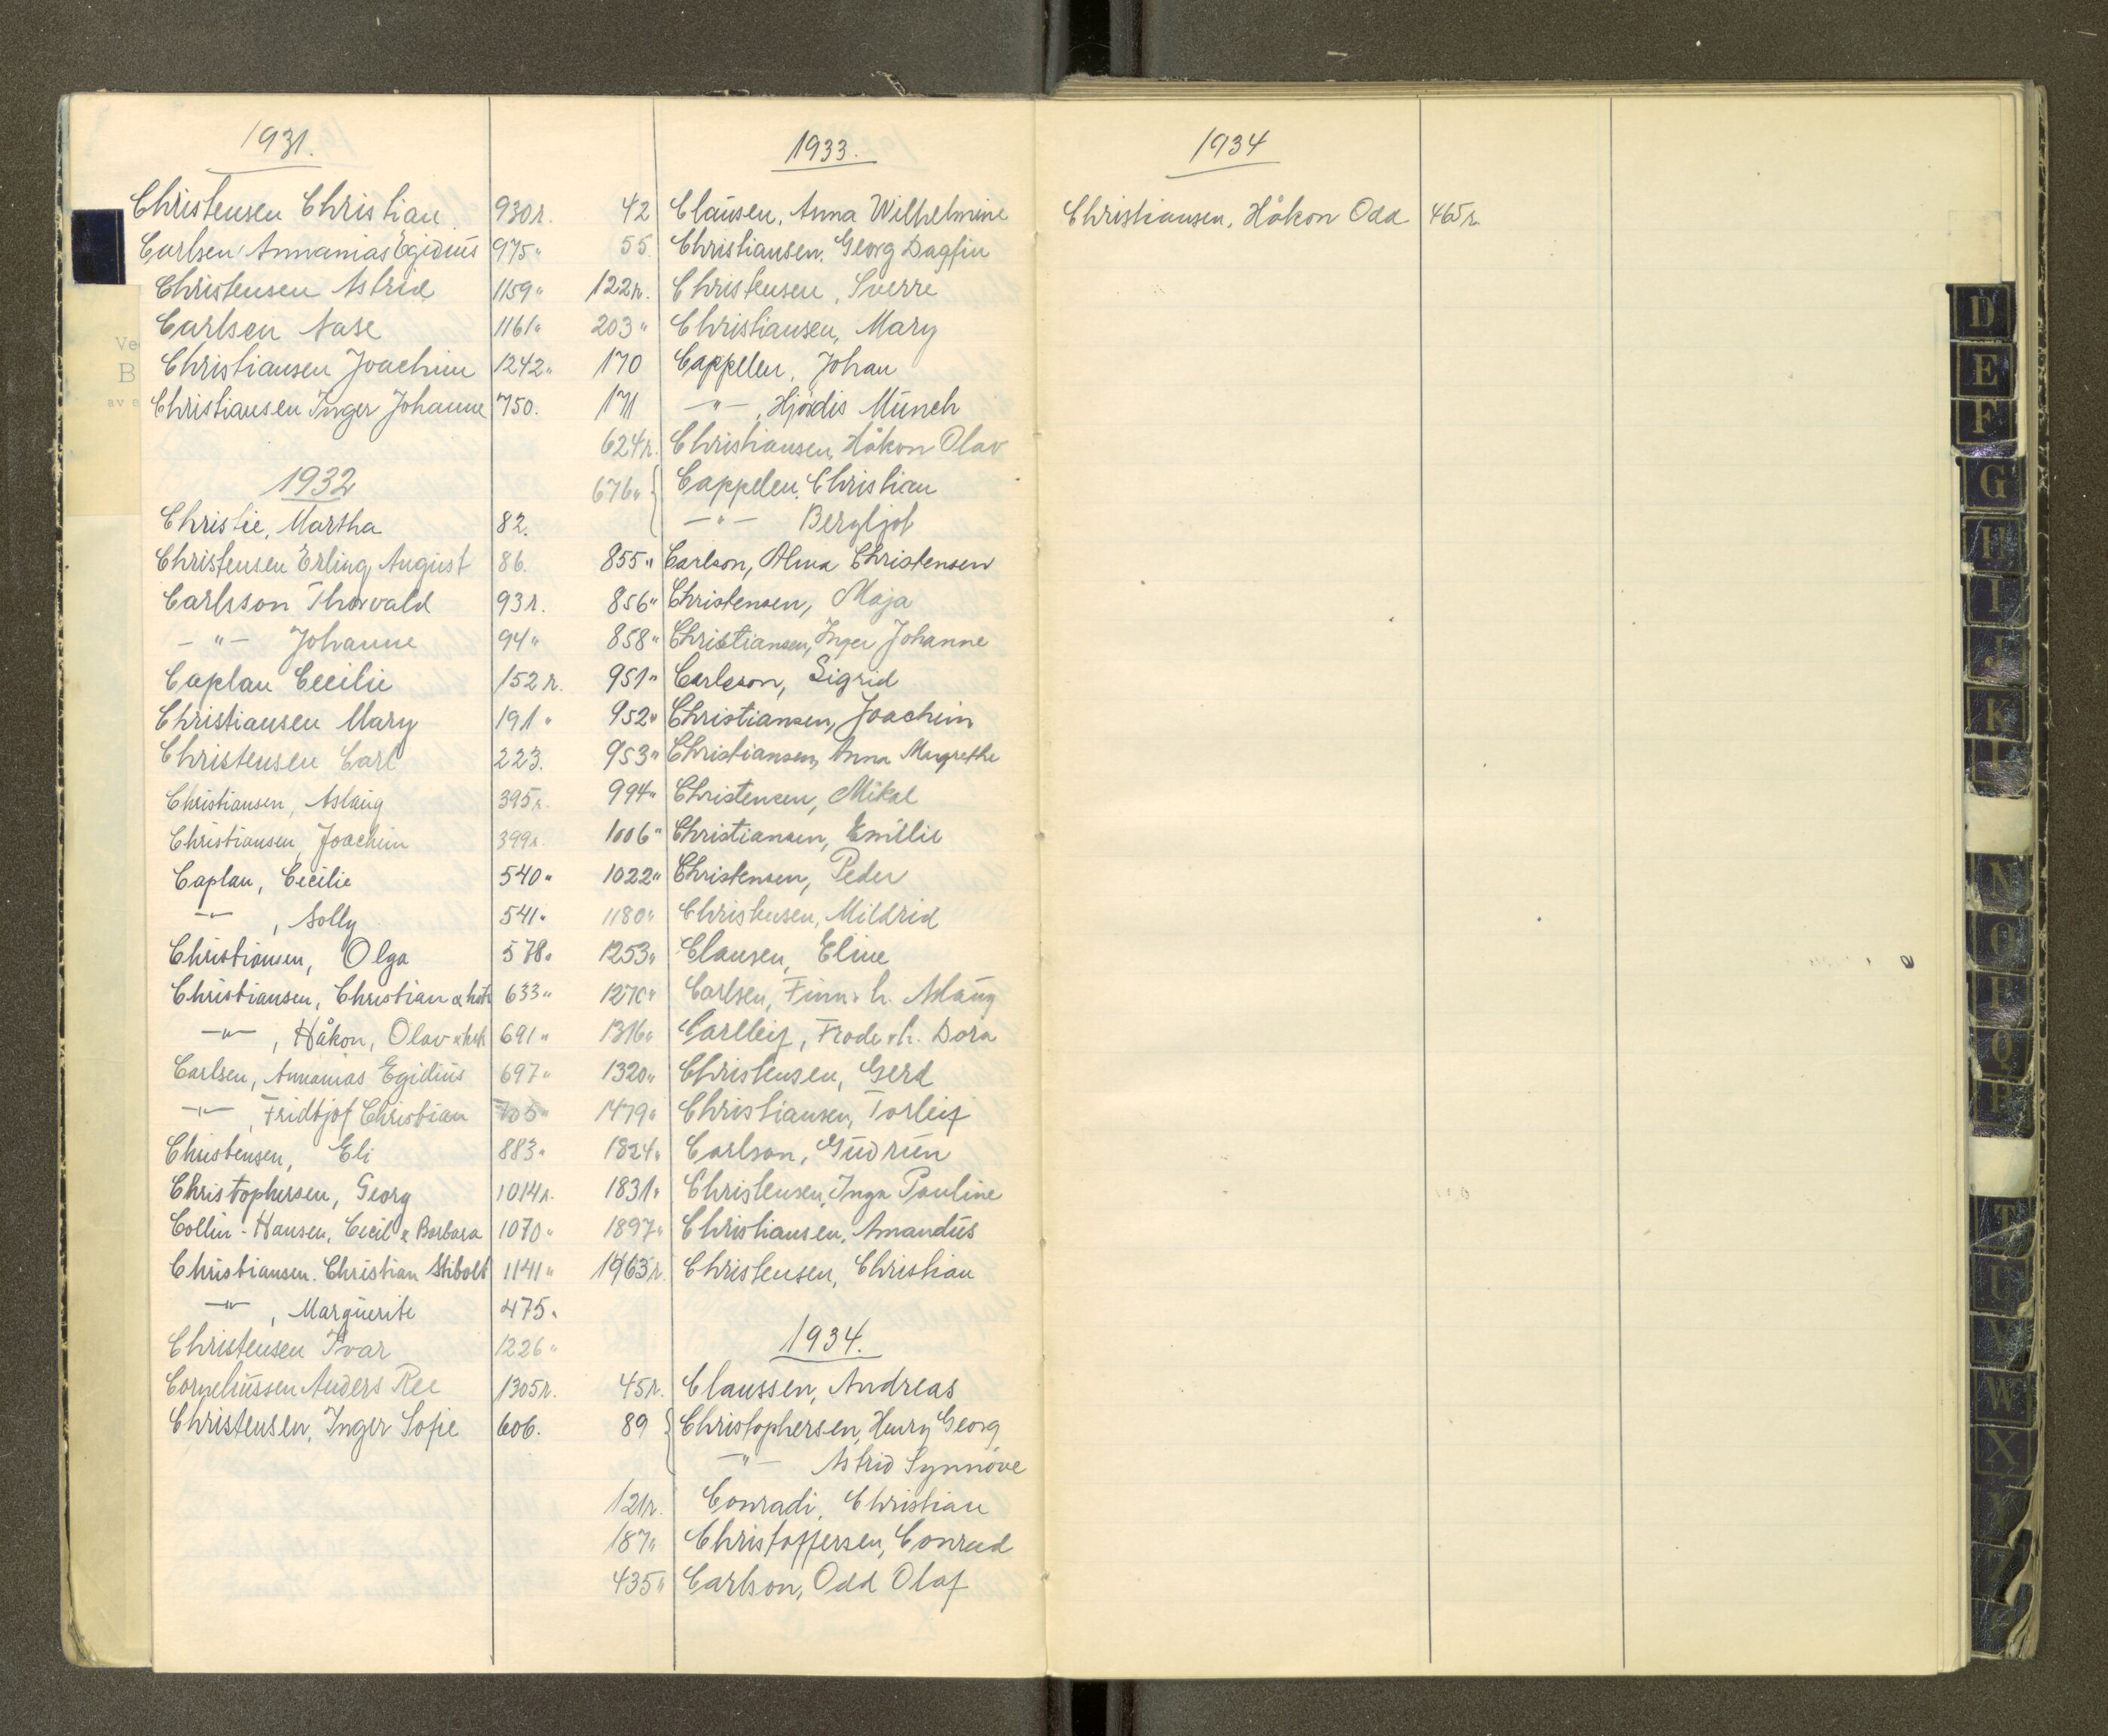 1931.
Christensen Christian 930 r.
Carlsen Annanias Egidius 975 "
Christensen Astrid 1159 "
Carlsen Aase 1161 "
Christiansen Joachim 1242 "
Christiansen Inger Johanne 750.
1932
Christie, Martha 82.
Christensen Erling August 86.
Carlsson Thorvald 93 r.
— " — Johanne 94 "
Caplan Cecilie 152 r.
Christiansen Mary 191 "
Christensen Carl 223.
Christiansen, Aslaug 395 r.
Christiansen, Joachim 399 r.
Caplan, Cecilie 540 "
— " —, Solly 541 "
Christiansen, Olga 578 "
Christiansen, Christian & hstr 633 "
— " —, Håkon, Olav & hstr 691 "
Carlsen, Annanias Egidius 697 "
— " —, Fridtjof Christian 705 "
Christensen, Eli 883 "
Christophersen, Georg 1014 r.
Collin-Hansen, Cecil & Barbara 1070 "
Christiansen. Christian Stibolt 1141 "
— " —, Marguerite 475 "
Christensen Ivar 1226 "
Corneliussen Anders Ree 1305 r.
Christensen, Inger Sofie 606.
1933.
42 Clausen, Anna Wilhelmine
55. Christiansen. Georg Dagfin
122 r. Christensen, Sverre
203 " Christiansen, Mary
170 Cappelen, Johan
171 — " —, Hjørdis Münch
624 r. Christiansen, Håkon Olav
676 " { Cappelen, Christian
— " — Bergljot
855 " Carlson, Alma Christensen
856 " Christensen, Maja
858 " Christiansen, Inger Johanne
951 " Carlsson, Sigrid
952 " Christiansen, Joachim
953 " Christiansen, Anna Margrethe
994 " Christensen, Mikal
1006 " Christiansen, Emilie
1022 " Christensen, Peder
1180 " Christensen, Mildrid
1253 " Clausen, Eline
1270 " Carlsen, Finn & h. Aslaug
1316 " Carlleif, Frode & h. Dora
1320 " Christensen, Gerd
1479 " Christiansen, Torleif
1824 " Carlson, Gudrun
1831 " Christensen, Inga Pauline
1897 " Christiansen, Amandus
1963 r. Christensen, Christian
1934.
45 r. Claussen, Andreas
89 { Christophersen, Henry Georg
— " — Astrid Synnøve
121 r. Conradi, Christian
187 " Christoffersen, Conrad
435 " Carlson, Odd Olaf
1934
Christiansen, Håkon Odd 465 r.
Ve
B
av e
D
E
F
G
H
I
J
K
L
N
O
P
Q
R
T
U
V
W
X
Y
Z